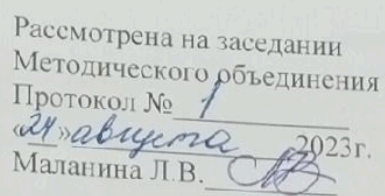 Рассмотрена на заседании
Методического объединения
Протокол № 1
«24» августа 2023г.
Маланина Л.В.